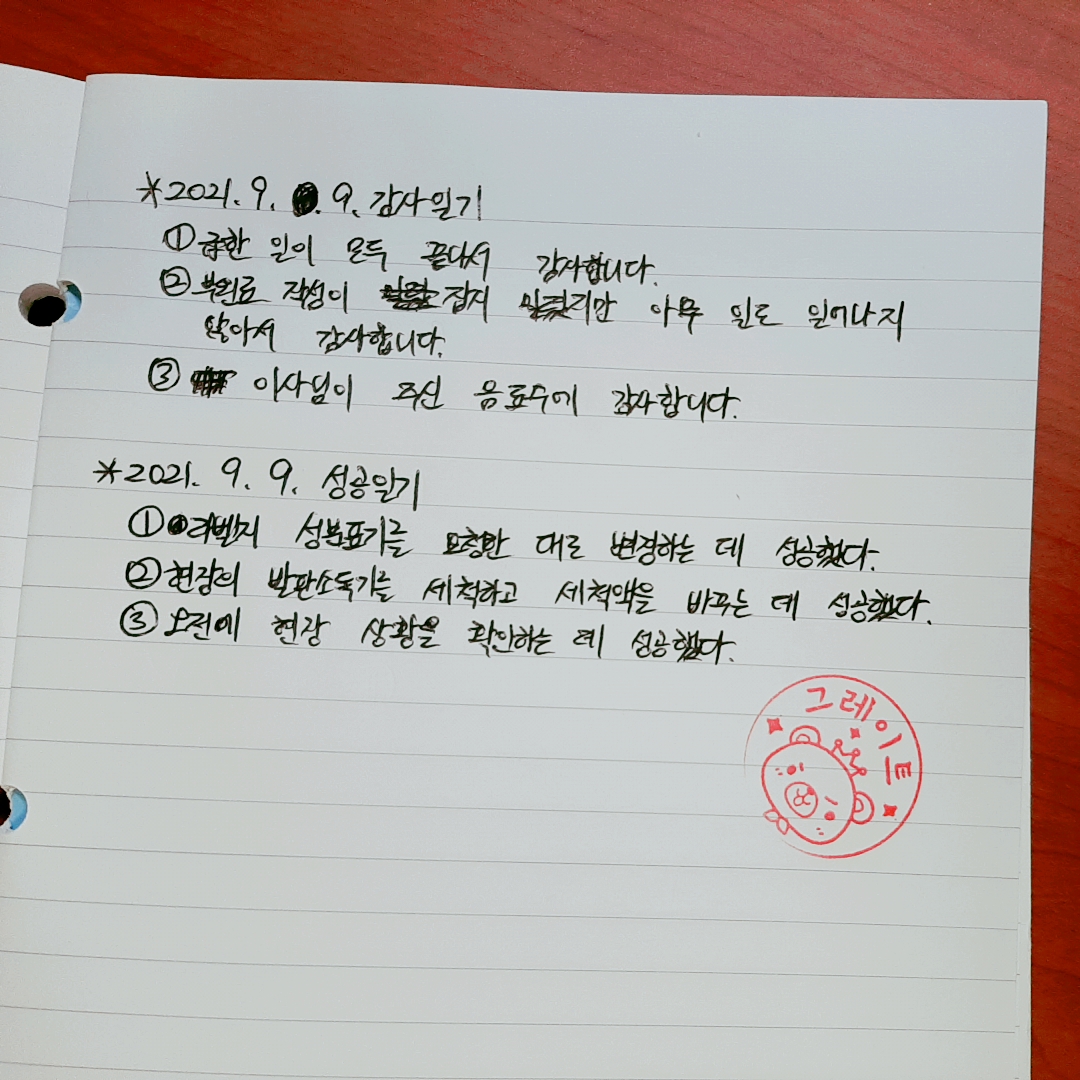 *2021. 9. 9. 감사일기
① 급한 일이 모두 끝나서 감사합니다.
② 작성이 잡지 밀렸지만 아무 일도 일어나지
않아서 감사합니다.
③ 이사님이 주신 음료수에 감사합니다.
*2021. 9. 9. 성공일기
① 라벨지 성분표기를 요청한 대로 변경하는 데 성공했다.
② 현장의 발판소독기를 세척하고 세척액을 바꾸는 데 성공했다.
③ 오전에 현장 상황을 확인하는 데 성공했다.
그레이트